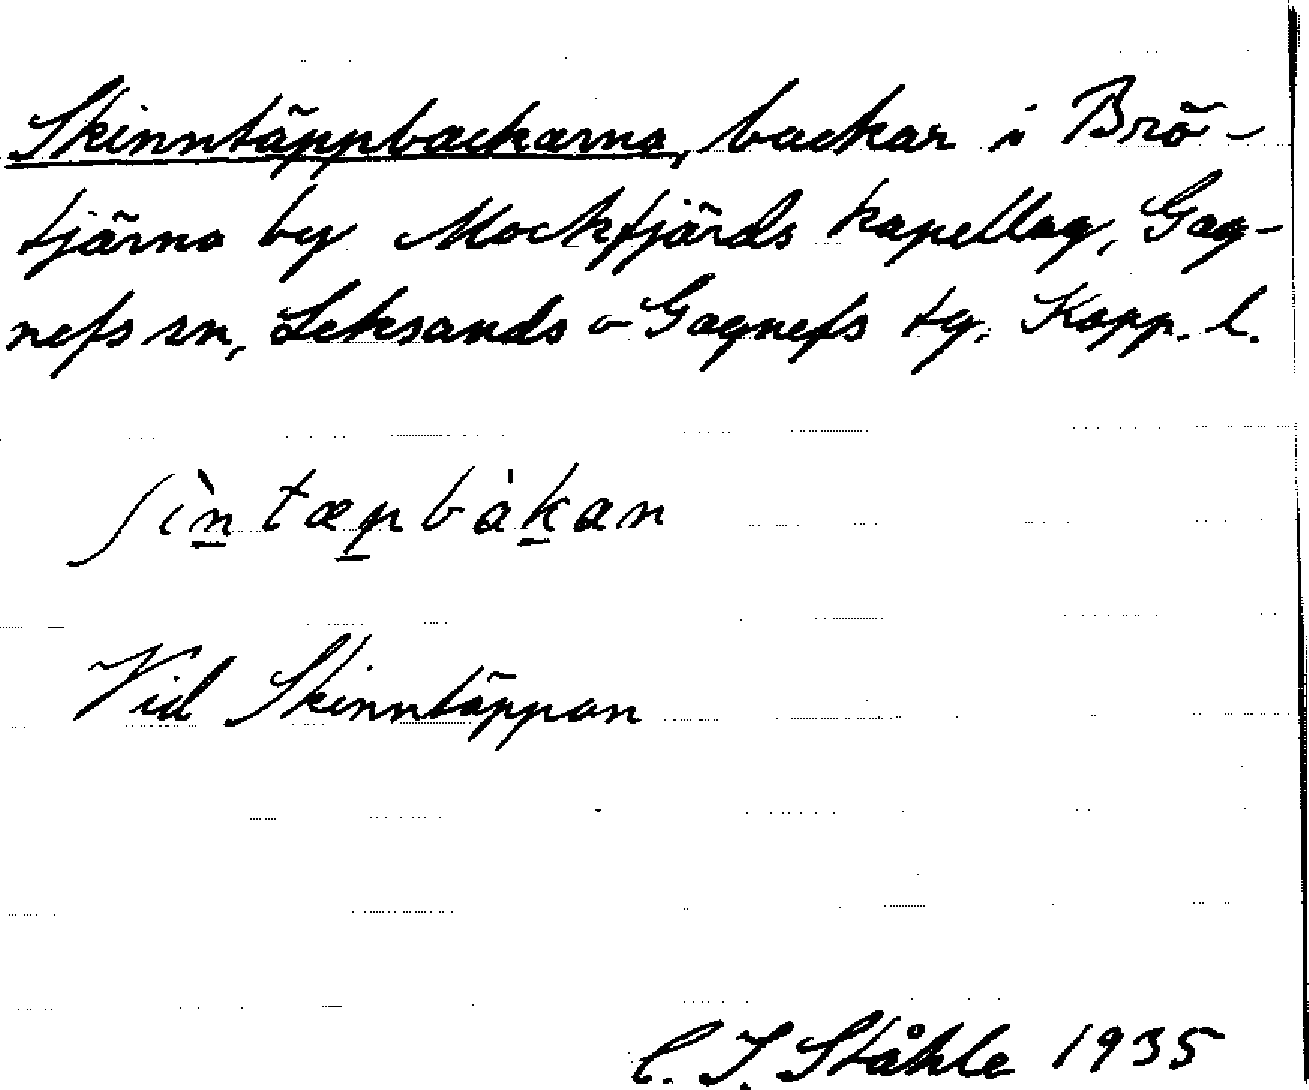 Skinntäppbackarna, backar i Brö-
tjärna by Mockfjärds kapellag, Gag-
nefs sn, Leksands o Gagnefs tg. Kopp. l.
ʃìn̲tæp̲bàk̲an
Vid Skinntäppan
C. I. Ståhle 1935